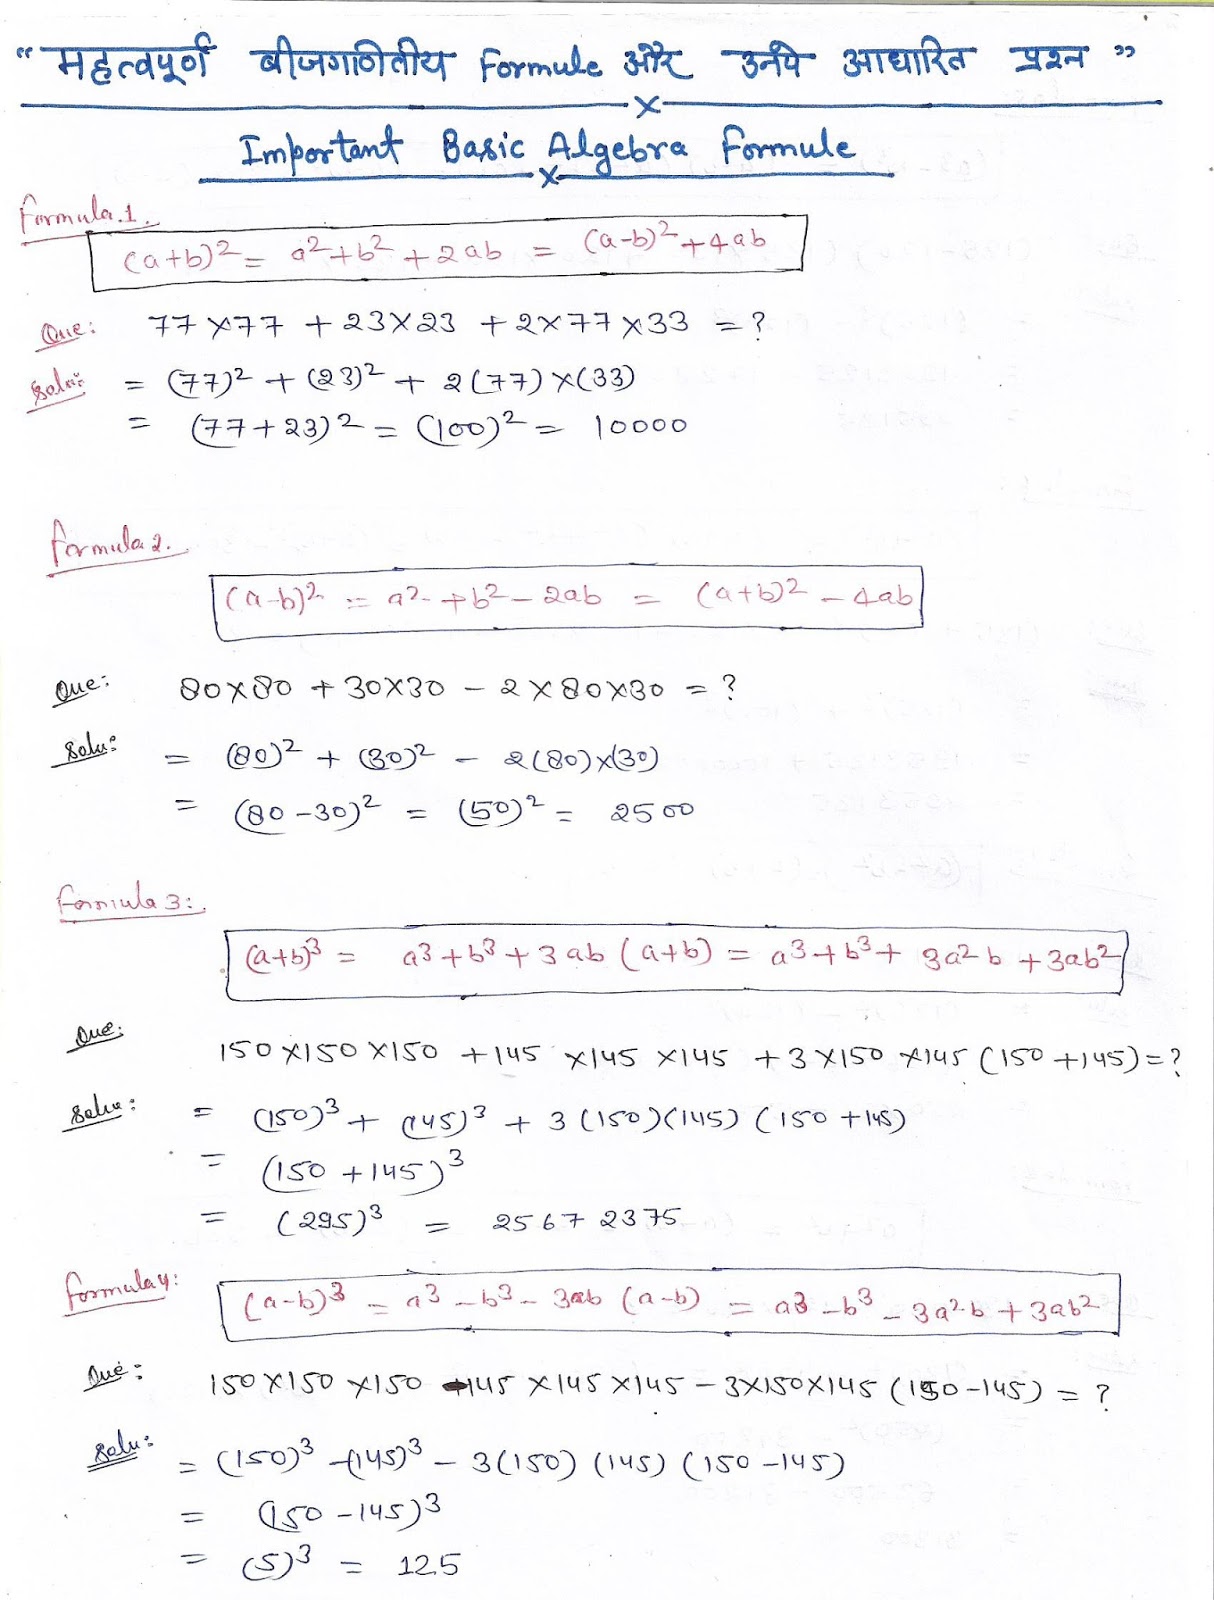 “महत्वपूर्ण बीजगणितीय Formule और उनपे आधारित प्रश्न”
Important Basic Algebra Formule
Formula.1.
(a+b)² = a²+b²+2ab = (a-b)²+4ab
Que: 77×77 + 23×23 + 2×77×33 = ?
Solu: = (77)² + (23)² + 2(77)×(33)
= (77+23)² = (100)² = 10000
Formula 2.
(a-b)² = a²+b²-2ab = (a+b)²-4ab
Que: 80×80 + 30×30 - 2×80×30 = ?
Solu: = (80)² + (30)² - 2(80)×(30)
= (80-30)² = (50)² = 2500
Formula 3:
(a+b)³ = a³+b³+3ab(a+b) = a³+b³+3a²b+3ab²
Que: 150×150×150 +145×145×145 +3×150×145(150+145)=?
Solu: = (150)³ + (145)³ + 3(150)(145)(150+145)
= (150+145)³
= (295)³ = 25672375
Formula 4:
(a-b)³ = a³-b³-3ab(a-b) = a³-b³-3a²b+3ab²
Que: 150×150×150 -145×145×145-3×150×145(150-145) = ?
Solu: = (150)³-(145)³-3(150)(145)(150-145)
= (150-145)³
= (5)³ = 125